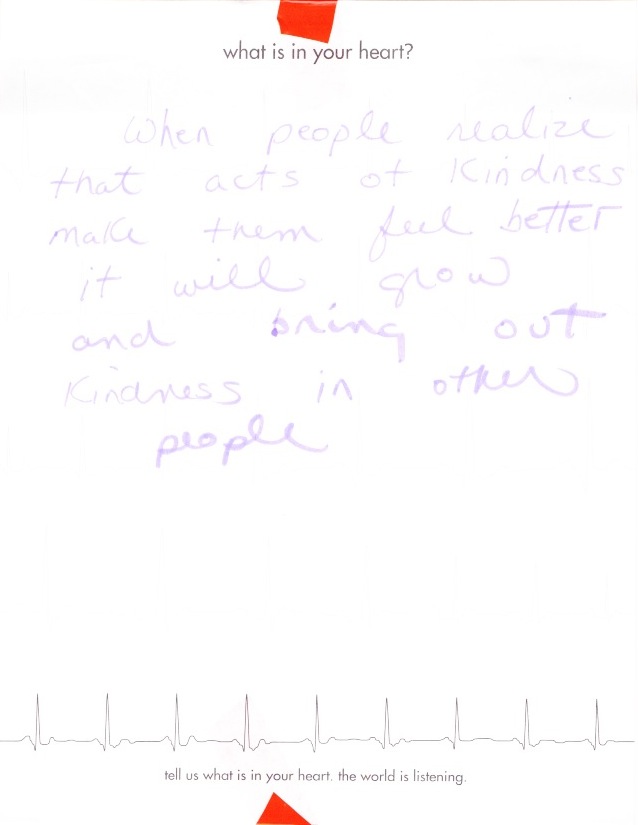 what is in your heart?
When people realize
that acts of Kindness
make them feel better
it will grow
and bring out
Kindness in other
people
tell us what is in your heart. the world is listening.